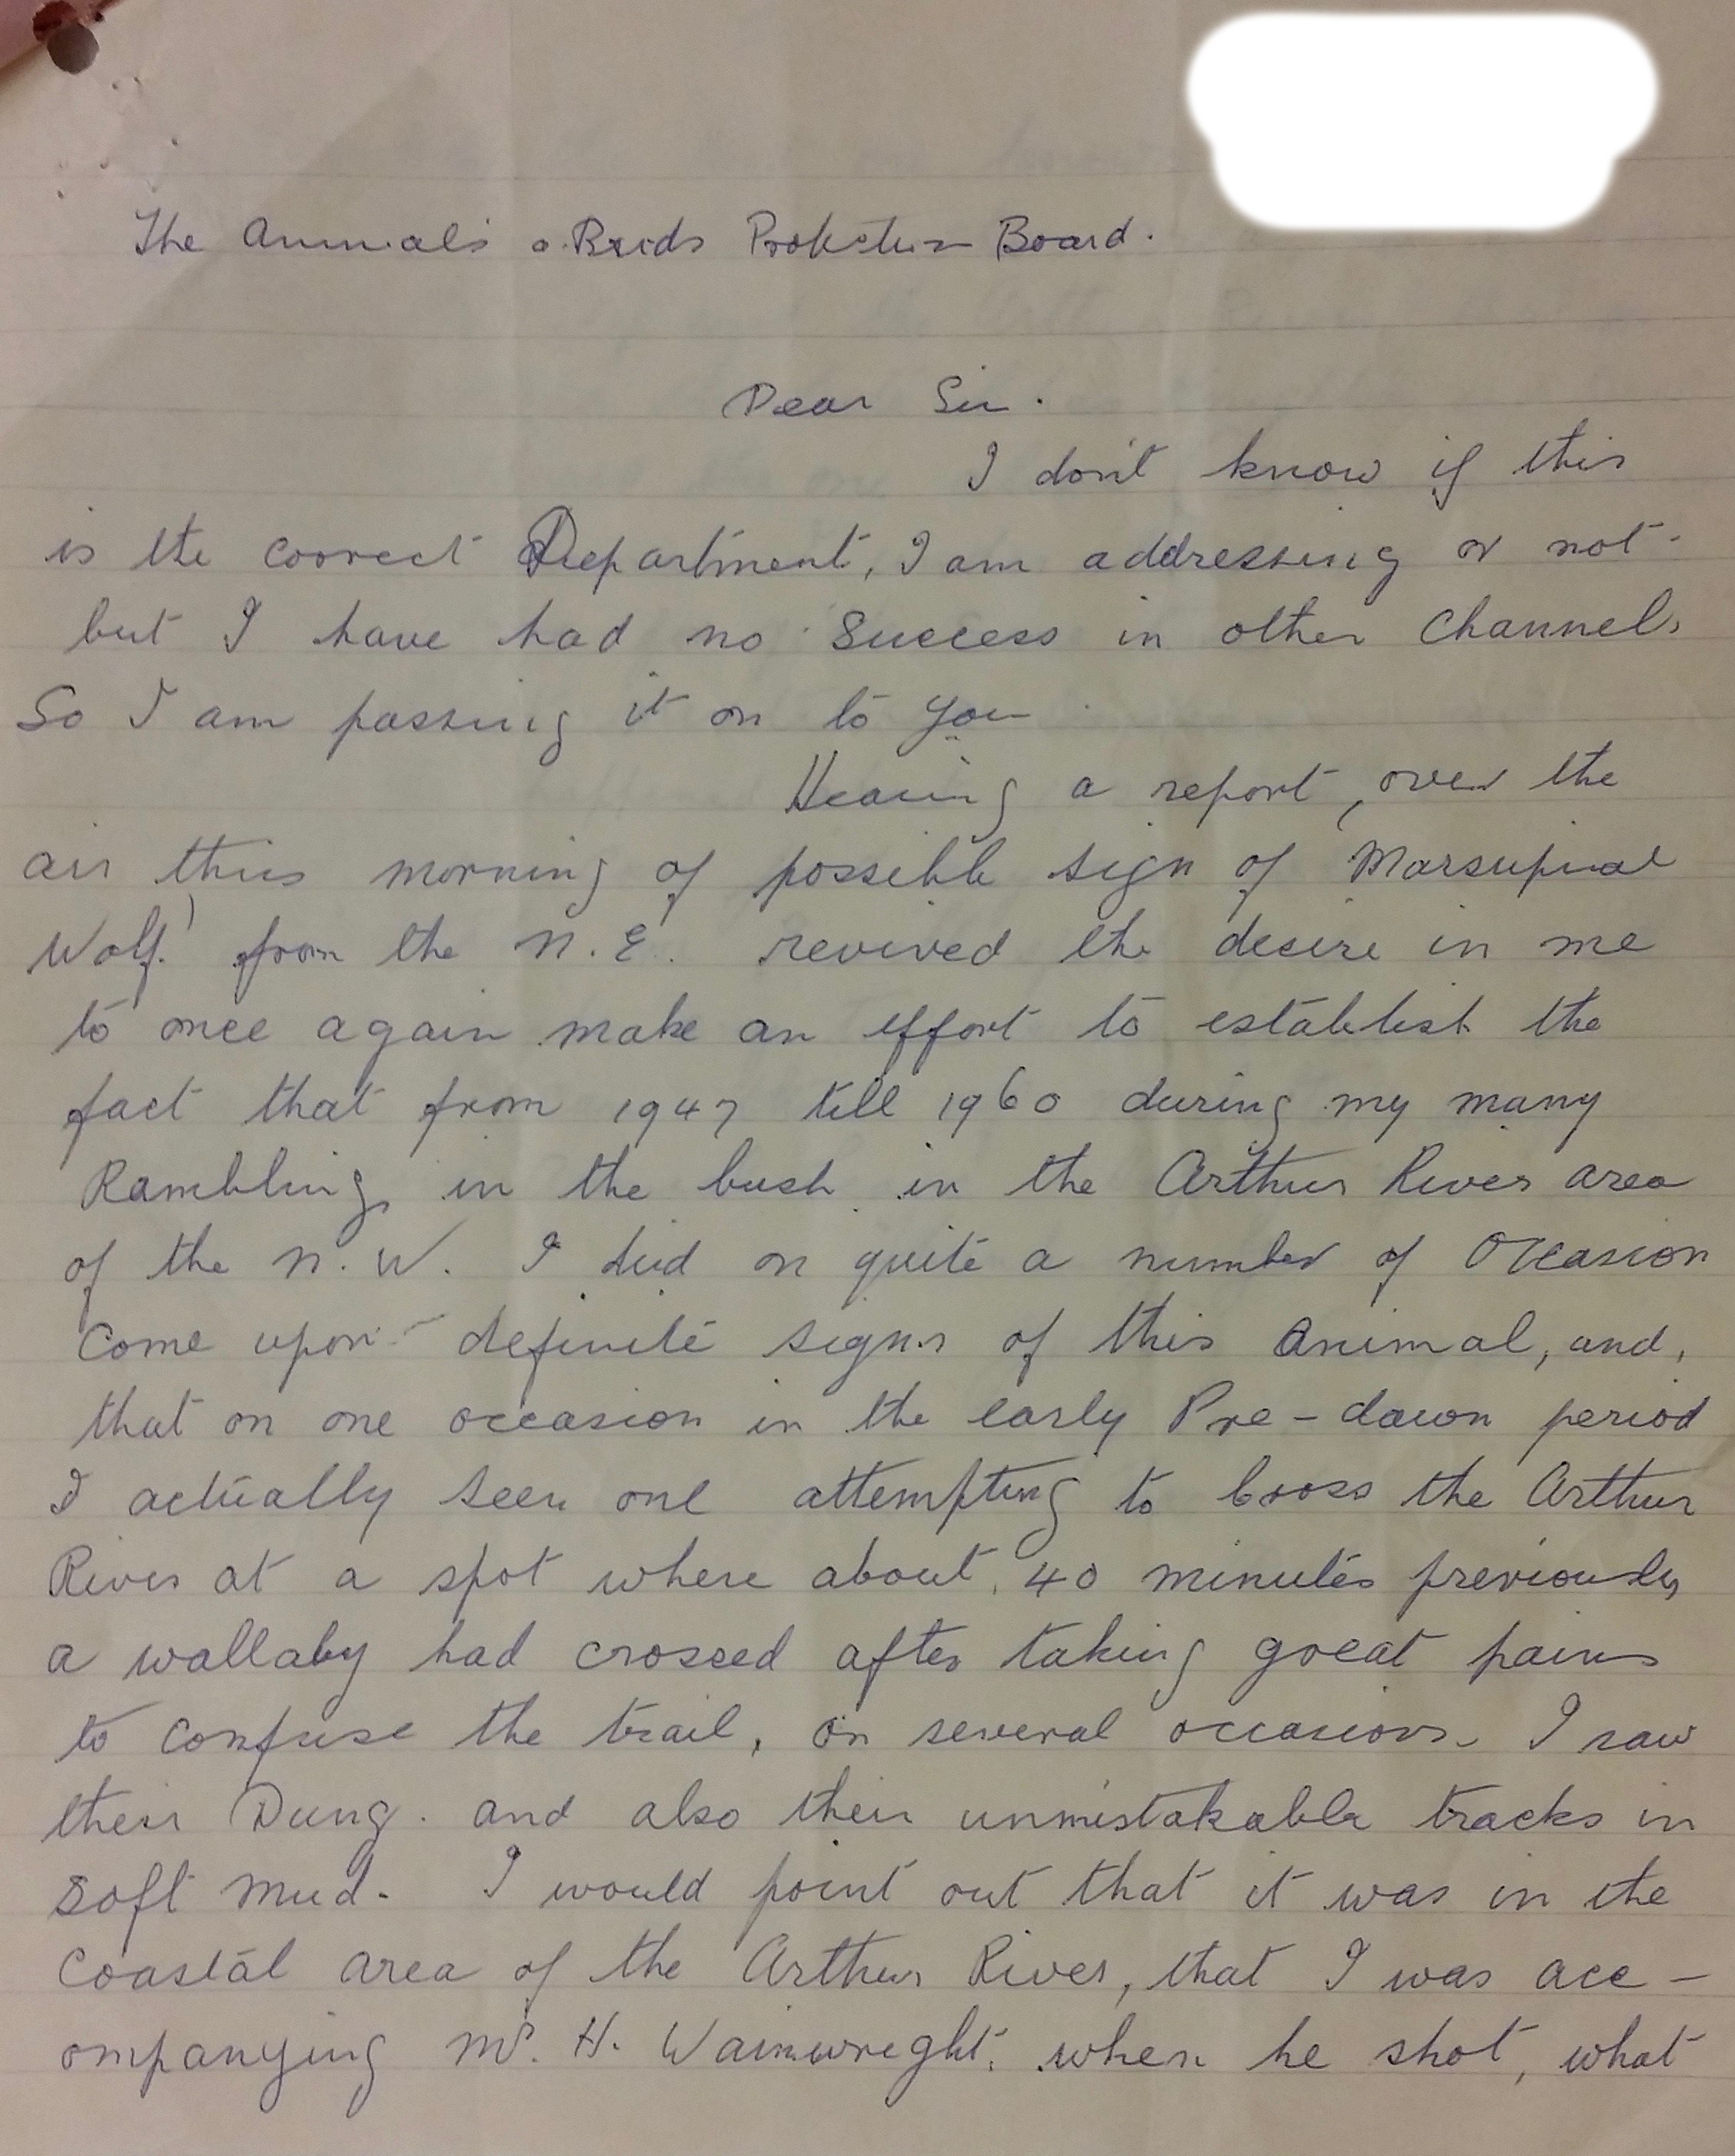 The Animals & Birds Protection Board.
Dear Sir.
I don't know if this
is the correct Department, I am addressing or not.
but I have had no success in other Channels
So I am passing it on to you
Hearing a report, over the
air this morning of possible sign of Marsupial
Wolf! from the N.E. revived the desire in me
to once again make an effort to establish the
fact that from 1947 till 1960 during my many
Ramblings in the bush in the Arthur River area
of the N.W. I did on quite a number of Occasion
Come upon definite signs of this Animal, and,
that on one occasion in the early Pre-dawn period
I actually seen one attempting to cross the Arthur
River at a spot where about 40 minutes previously
a wallaby had crossed after taking great pains
to confuse the trail, on several occasions. I saw
their Dung. and also their unmistakable tracks in
soft mud. I would point out that it was in the
Coastal area of the Arthur River, that I was acc-
ompanying Mr. H. Wainwright. when he shot, what